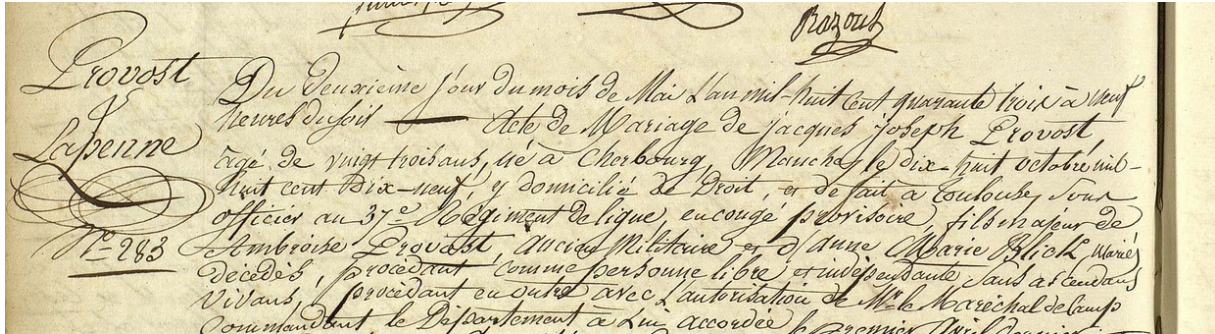 Razout
Provost
&
Lapenne
N.º 283
Du deuxième jour du mois de Mai L'an mil-huit cent quarante trois à neuf
heures du soir — Acte de Mariage de jacques joseph Provost
âgé de vingt trois ans, né à Cherbourg, Manche, le dix-huit octobre mil-
huit cent Dix-neuf, y domicilié de Droit, et de fait à Toulouse, sous
officier au 37e Régiment de ligne, en congé provisoire, fils majeur de
Ambroise Provost, ancien Militaire et d'anne Marie Blick, Mariés
décédés, procédant comme personne libre et indépendante sans ascendans
vivans, procédant en outre avec L'autorisation de Mr. le Maréchal de Camp
Commandant le Département à Lui accordée le Premier Avril dernier